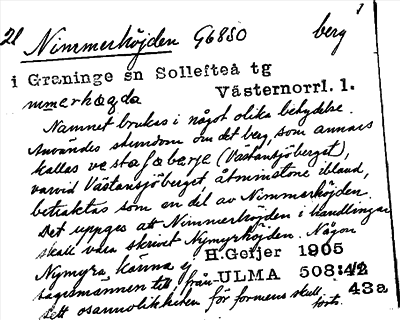 21 Nimmerhöjden 96850 berg 1
i Graninge sn Sollefteå tg
Västernorrl. l.
Namnet brukas i något olika betydelse.
Användes stundom om det berg, som annars
kallas (Västansjöberget),
varvid Västansjöberget, åtminstone ibland,
betraktas som en del av Nimmerhöjden.
Det uppges att Nimmerhöjden i handlingar
skall vara skrivet Nymyrhöjden. Någon
Nymyra känna ej H.Geijer 1905
sagesmannen till, från ULMA 508:42
sett osannolikheten för formens skull. 43a